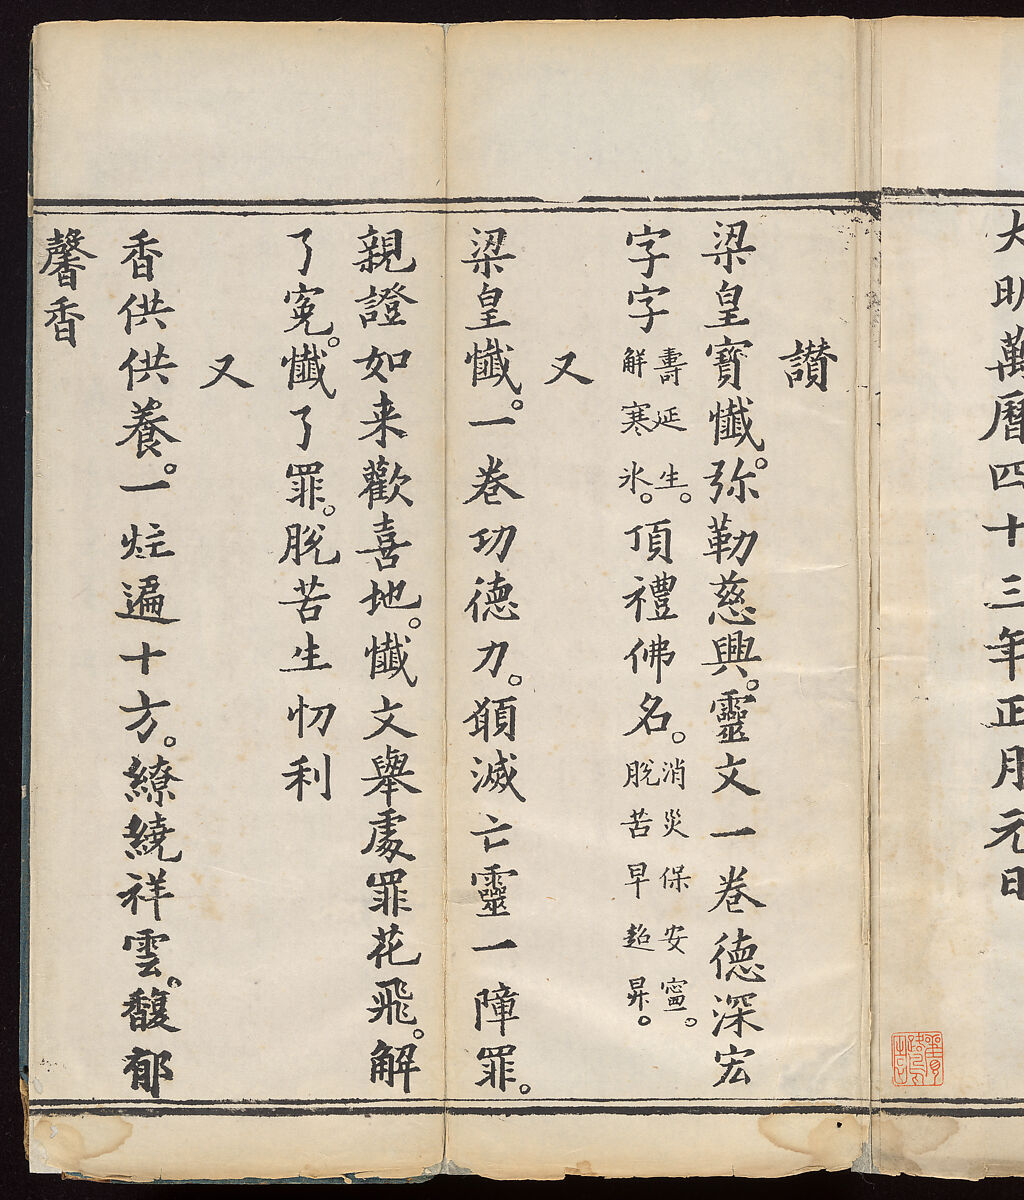 大明萬曆四十三年正月元日
讃
梁皇寳懺。弥勒慈興。靈文一卷德深宏
字字壽延生。解寒氷。頂禮佛名。消災保安寧。脫苦早超昇。
又
梁皇懺。一卷功德力。願滅亡靈一障罪。
親證如来歡喜地。懺文舉處罪花飛。解
了寃。懺了罪。脫苦生忉利
又
香供供養。一炷遍十方。繚繞祥雲。馥郁
馨香